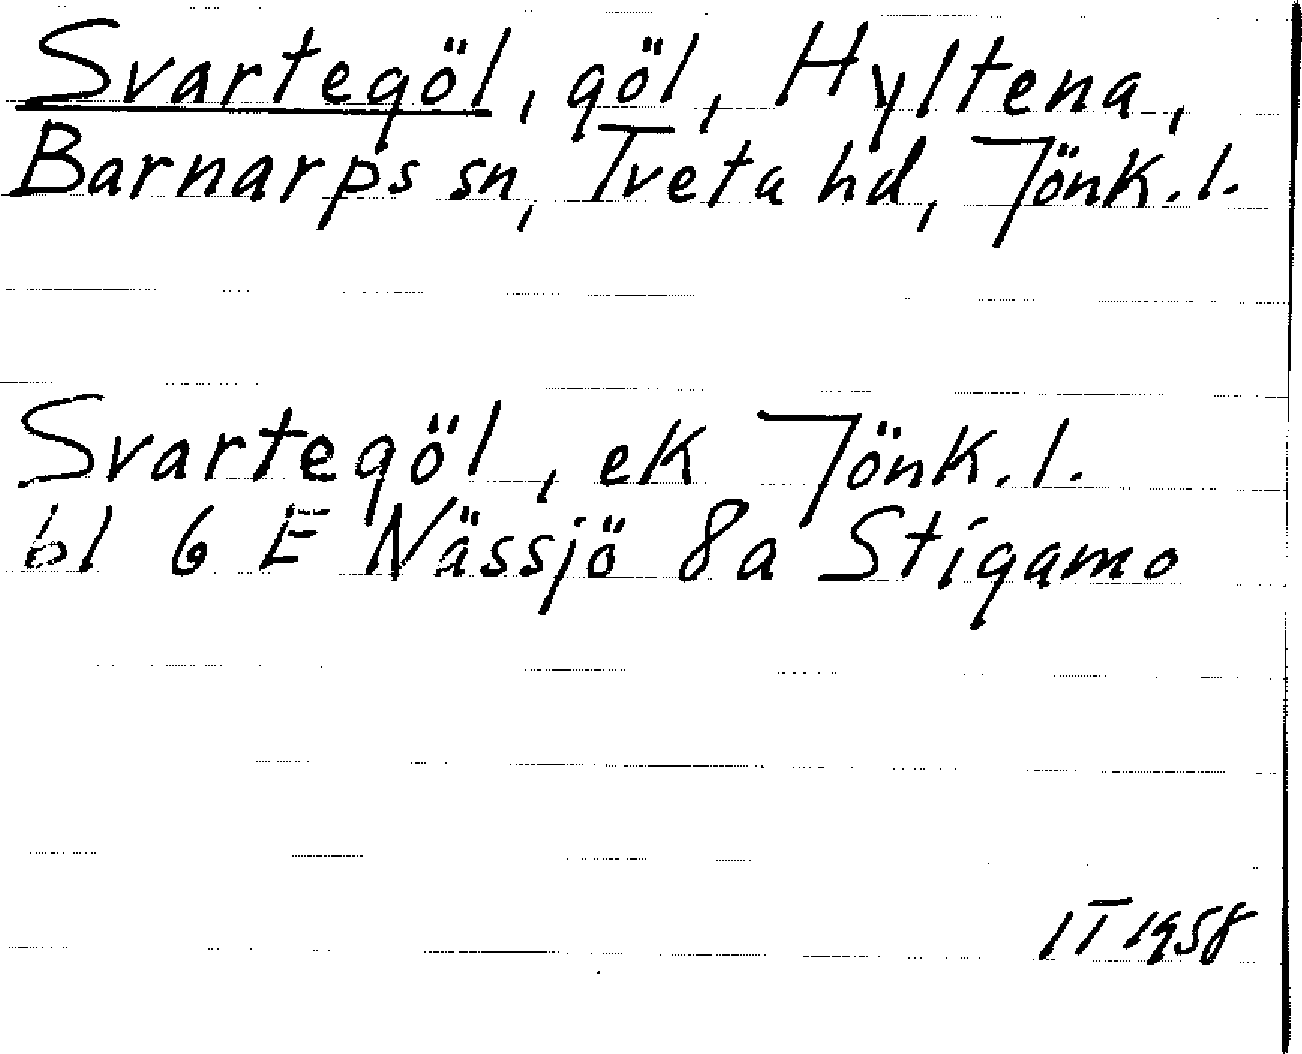 Svartegöl, göl, Hyltena,
Barnarps sn, Tveta hd, Jönk. l.
Svartegöl, ek Jönk. l.
bl 6 E Nässjö 8a Stigamo
IT 1958